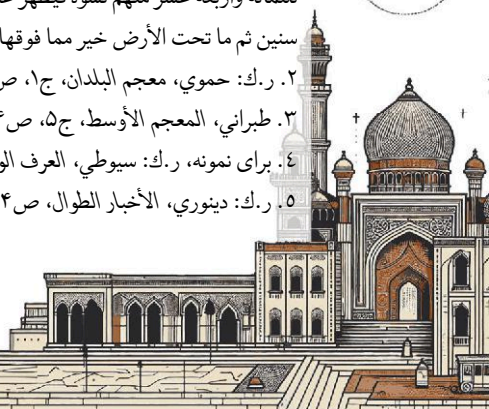 سنين ثم ما تحت الأرض خير مما فوقها
۲. ر.ك: حموي، معجم البلدان، ج۱، ص
۳. طبراني، المعجم الأوسط، ج۵، ص
٤. براى نمونه، ر.ك: سيوطي، العرف
۵. ر.ك: دينوري، الأخبار الطوال، ص۴